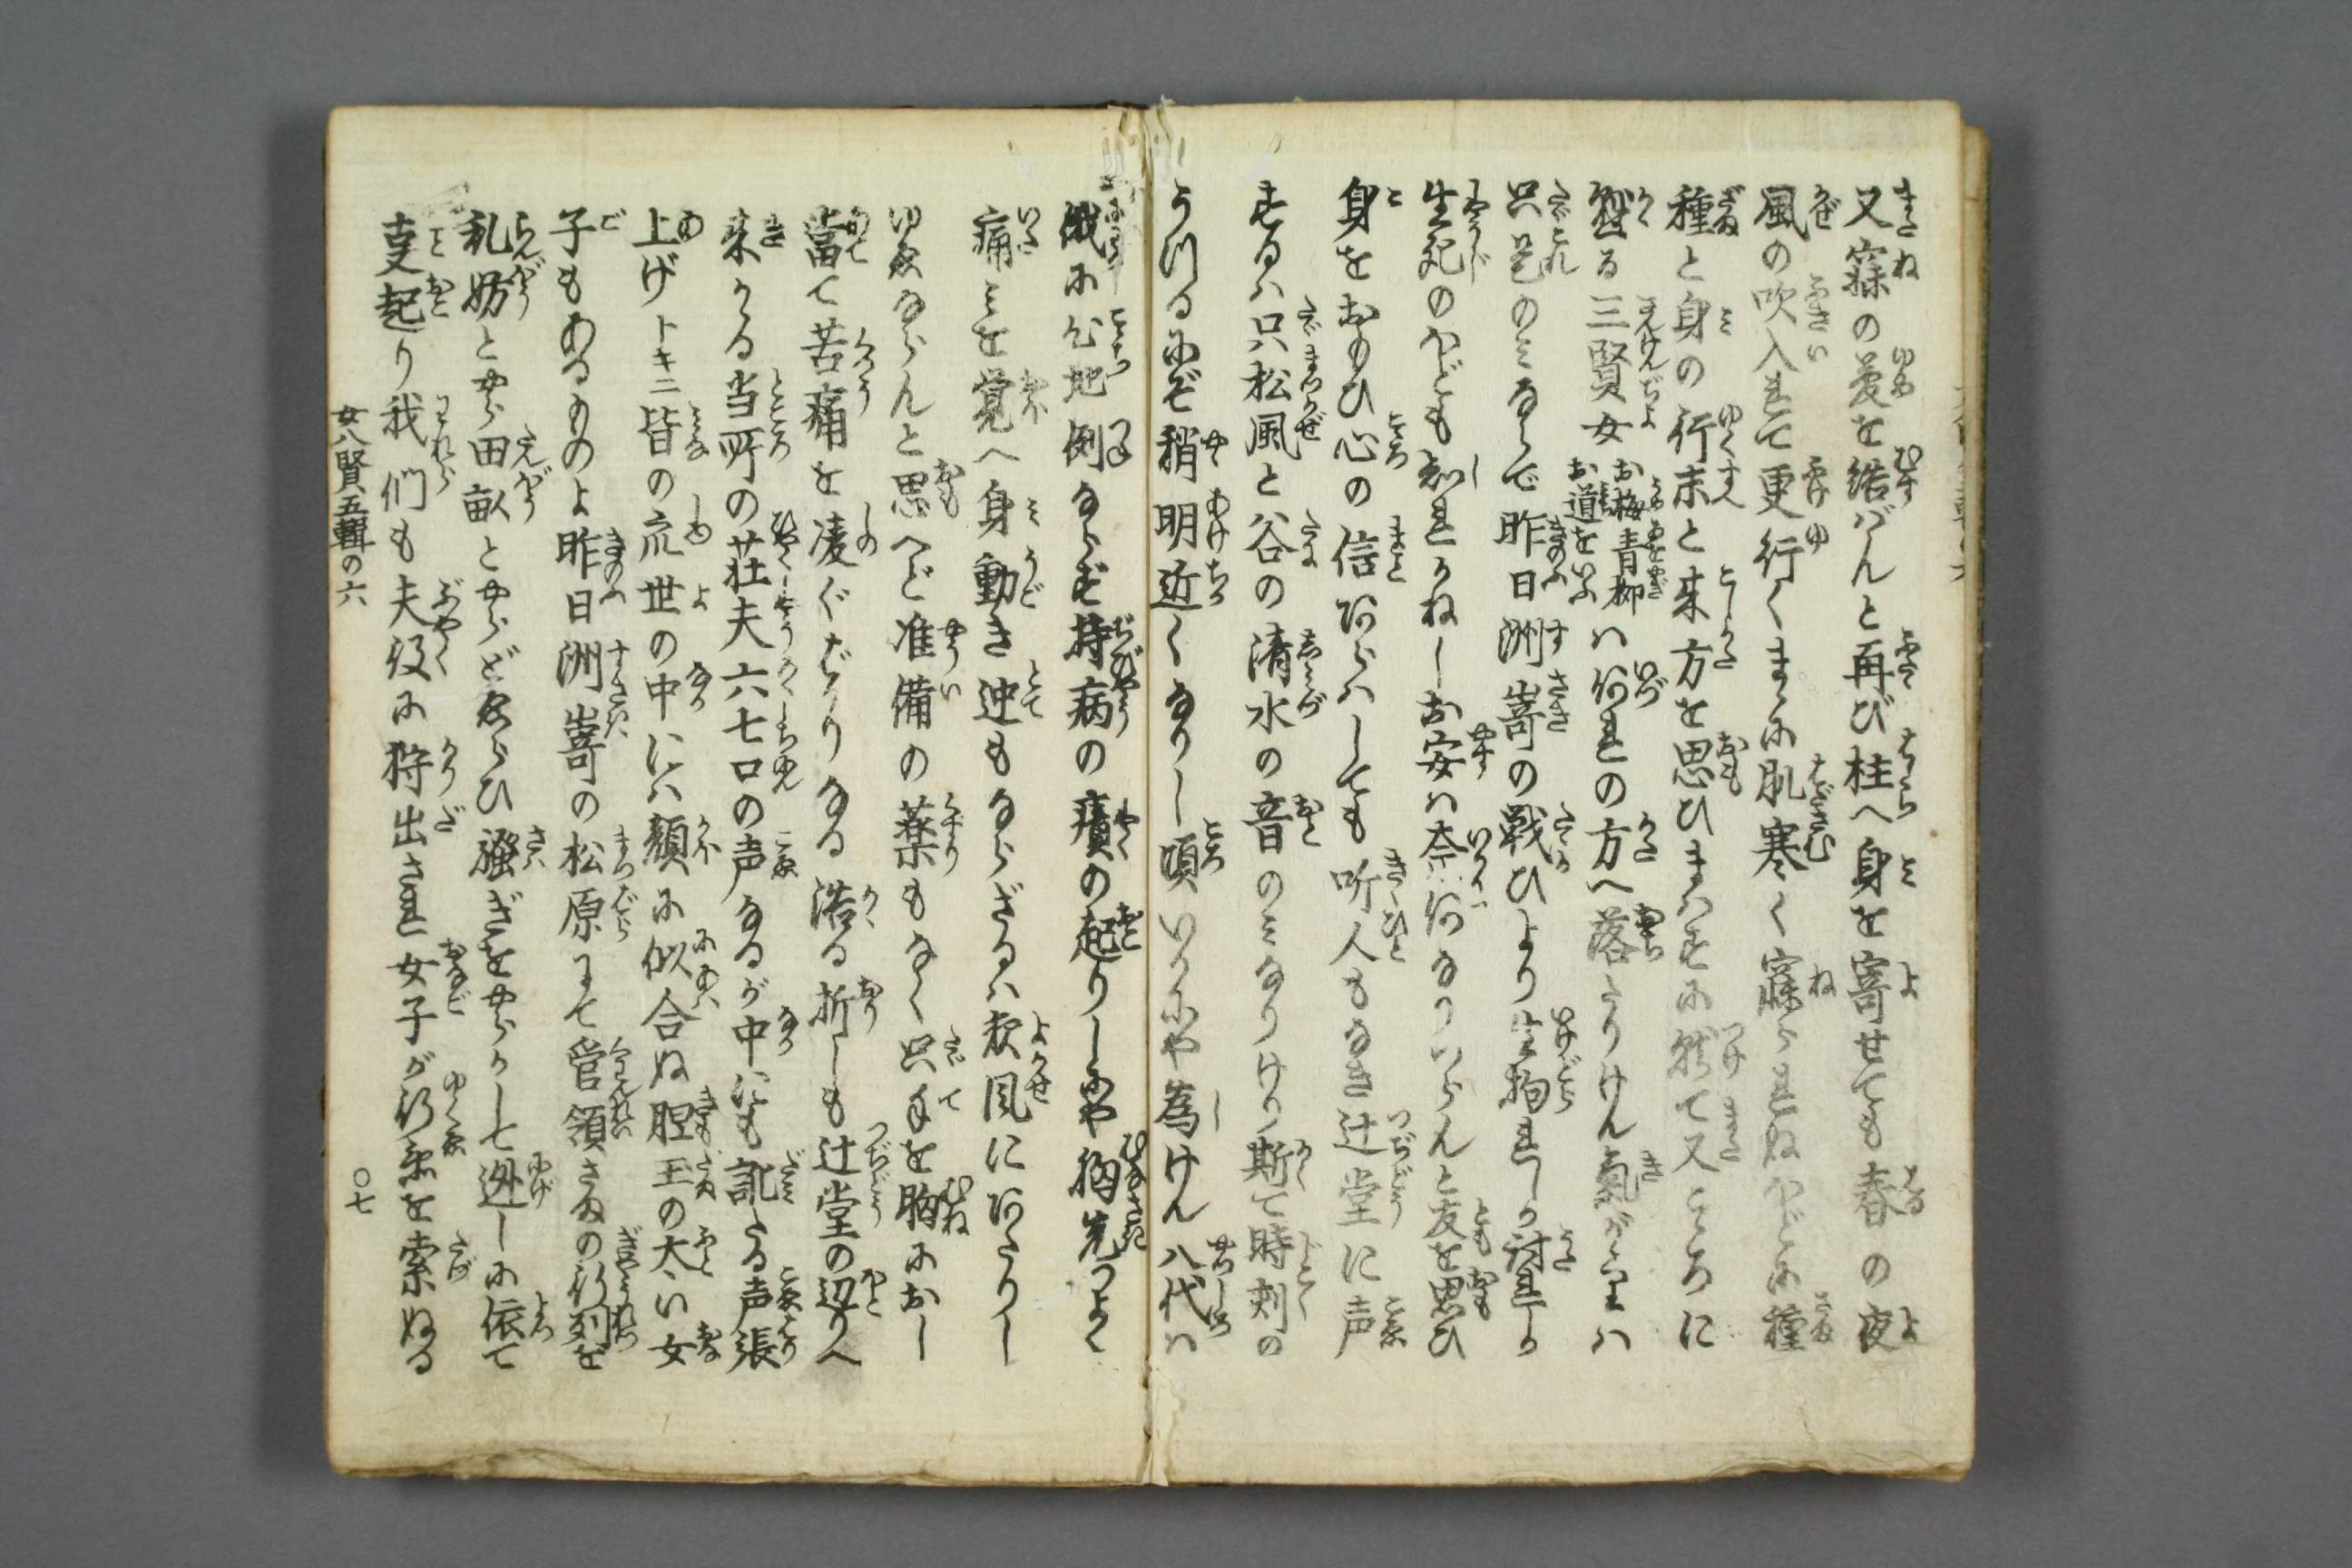 又寐の夢を結ばんと再び柱へ身を寄せても春の夜
風の吹入れて更行くまゝに肌寒く寐られぬほどに種
種と身の行末と来方を思ひまはすに就て又こゝろに
懸る三賢女お梅青柳お道をいふハ何れの方へ落たりけん
只是のみならで昨日洲嵜の戦ひより生拘れしか討れしか
生死のほども知れかねしお安ハ奈何なりつらんと友を思ひ
身をおもひ心の信あらはしても听人もなき辻堂に声
するハ只松風と谷の清水の音のみなりけり斯て時刻の
うつるにぞ稍明近くなりし頃いかにや為けん八代ハ
俄に心地例ならず持病の癪の起りしにや胸先つよく
痛みを覚へ身動き迚もならざるハ夜風にあたりし
ゆゑならんと思へど准備の薬もなく只手を胸におし
當て苦痛を凌ぐばかりなる浩る折しも辻堂の辺りへ
来かゝる当所の荘夫六七口の声なるが中にも訛たる声張
上げトキニ皆の衆世の中にハ顔に似合ぬ胆玉の太い女
子もあるものよ昨日洲嵜の松原にて管領さまの行列を
乱妨とやら田畝とやらどゑらひ騒ぎをやらかして迯しに依て
事起り我們も夫役に狩出され女子が行衛を索ぬる
女八賢五輯の六
〇七